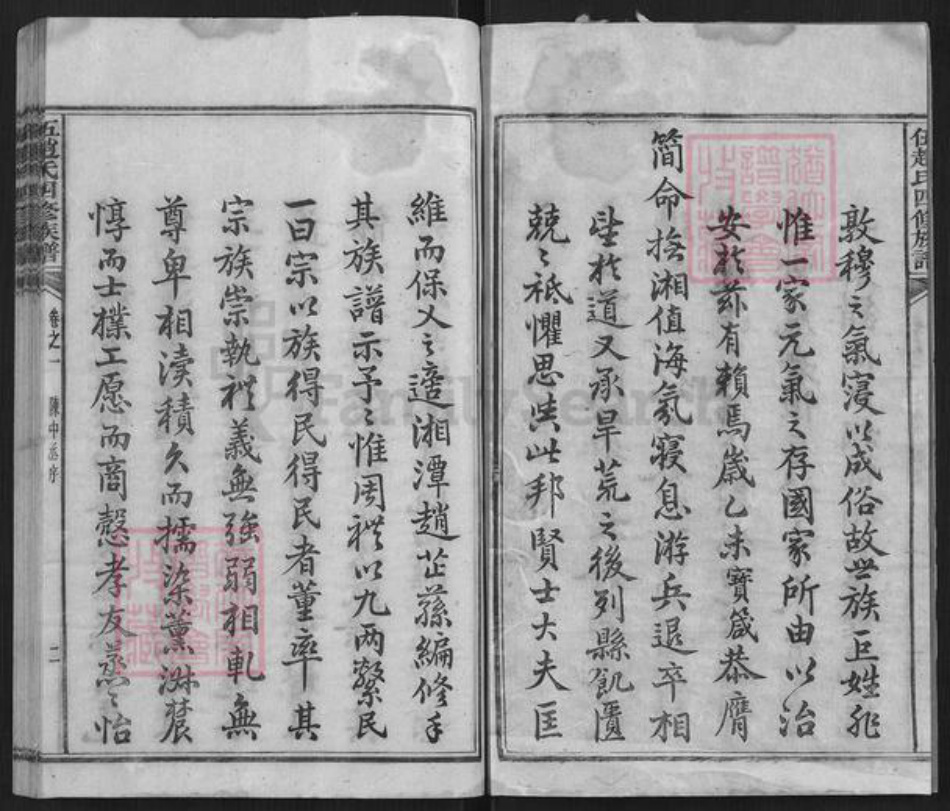 敦穆之氣寖以成俗故世族巨姓非
惟一家元氣之存國家所由以治
安於茲有賴焉歲乙未寶箴恭膺
簡命撫湘值海氛寖息游兵退卒相
朢於道又承旱荒之後列縣飢匱
兢〻祗懼思與此邦賢士大夫匡
維而保乂之適湘潭趙芷蓀編修手
其族譜示予〻惟周禮以九兩繫民
一曰宗以族得民得民者董率其
宗族崇執禮義無強弱相軋無
尊卑相瀆積久而擩染薰淋農
惇而士樸工愿而商愨孝友蒸〻怡
五趙氏四修族譜
卷之一
陳中丞序
二
FamilySearch